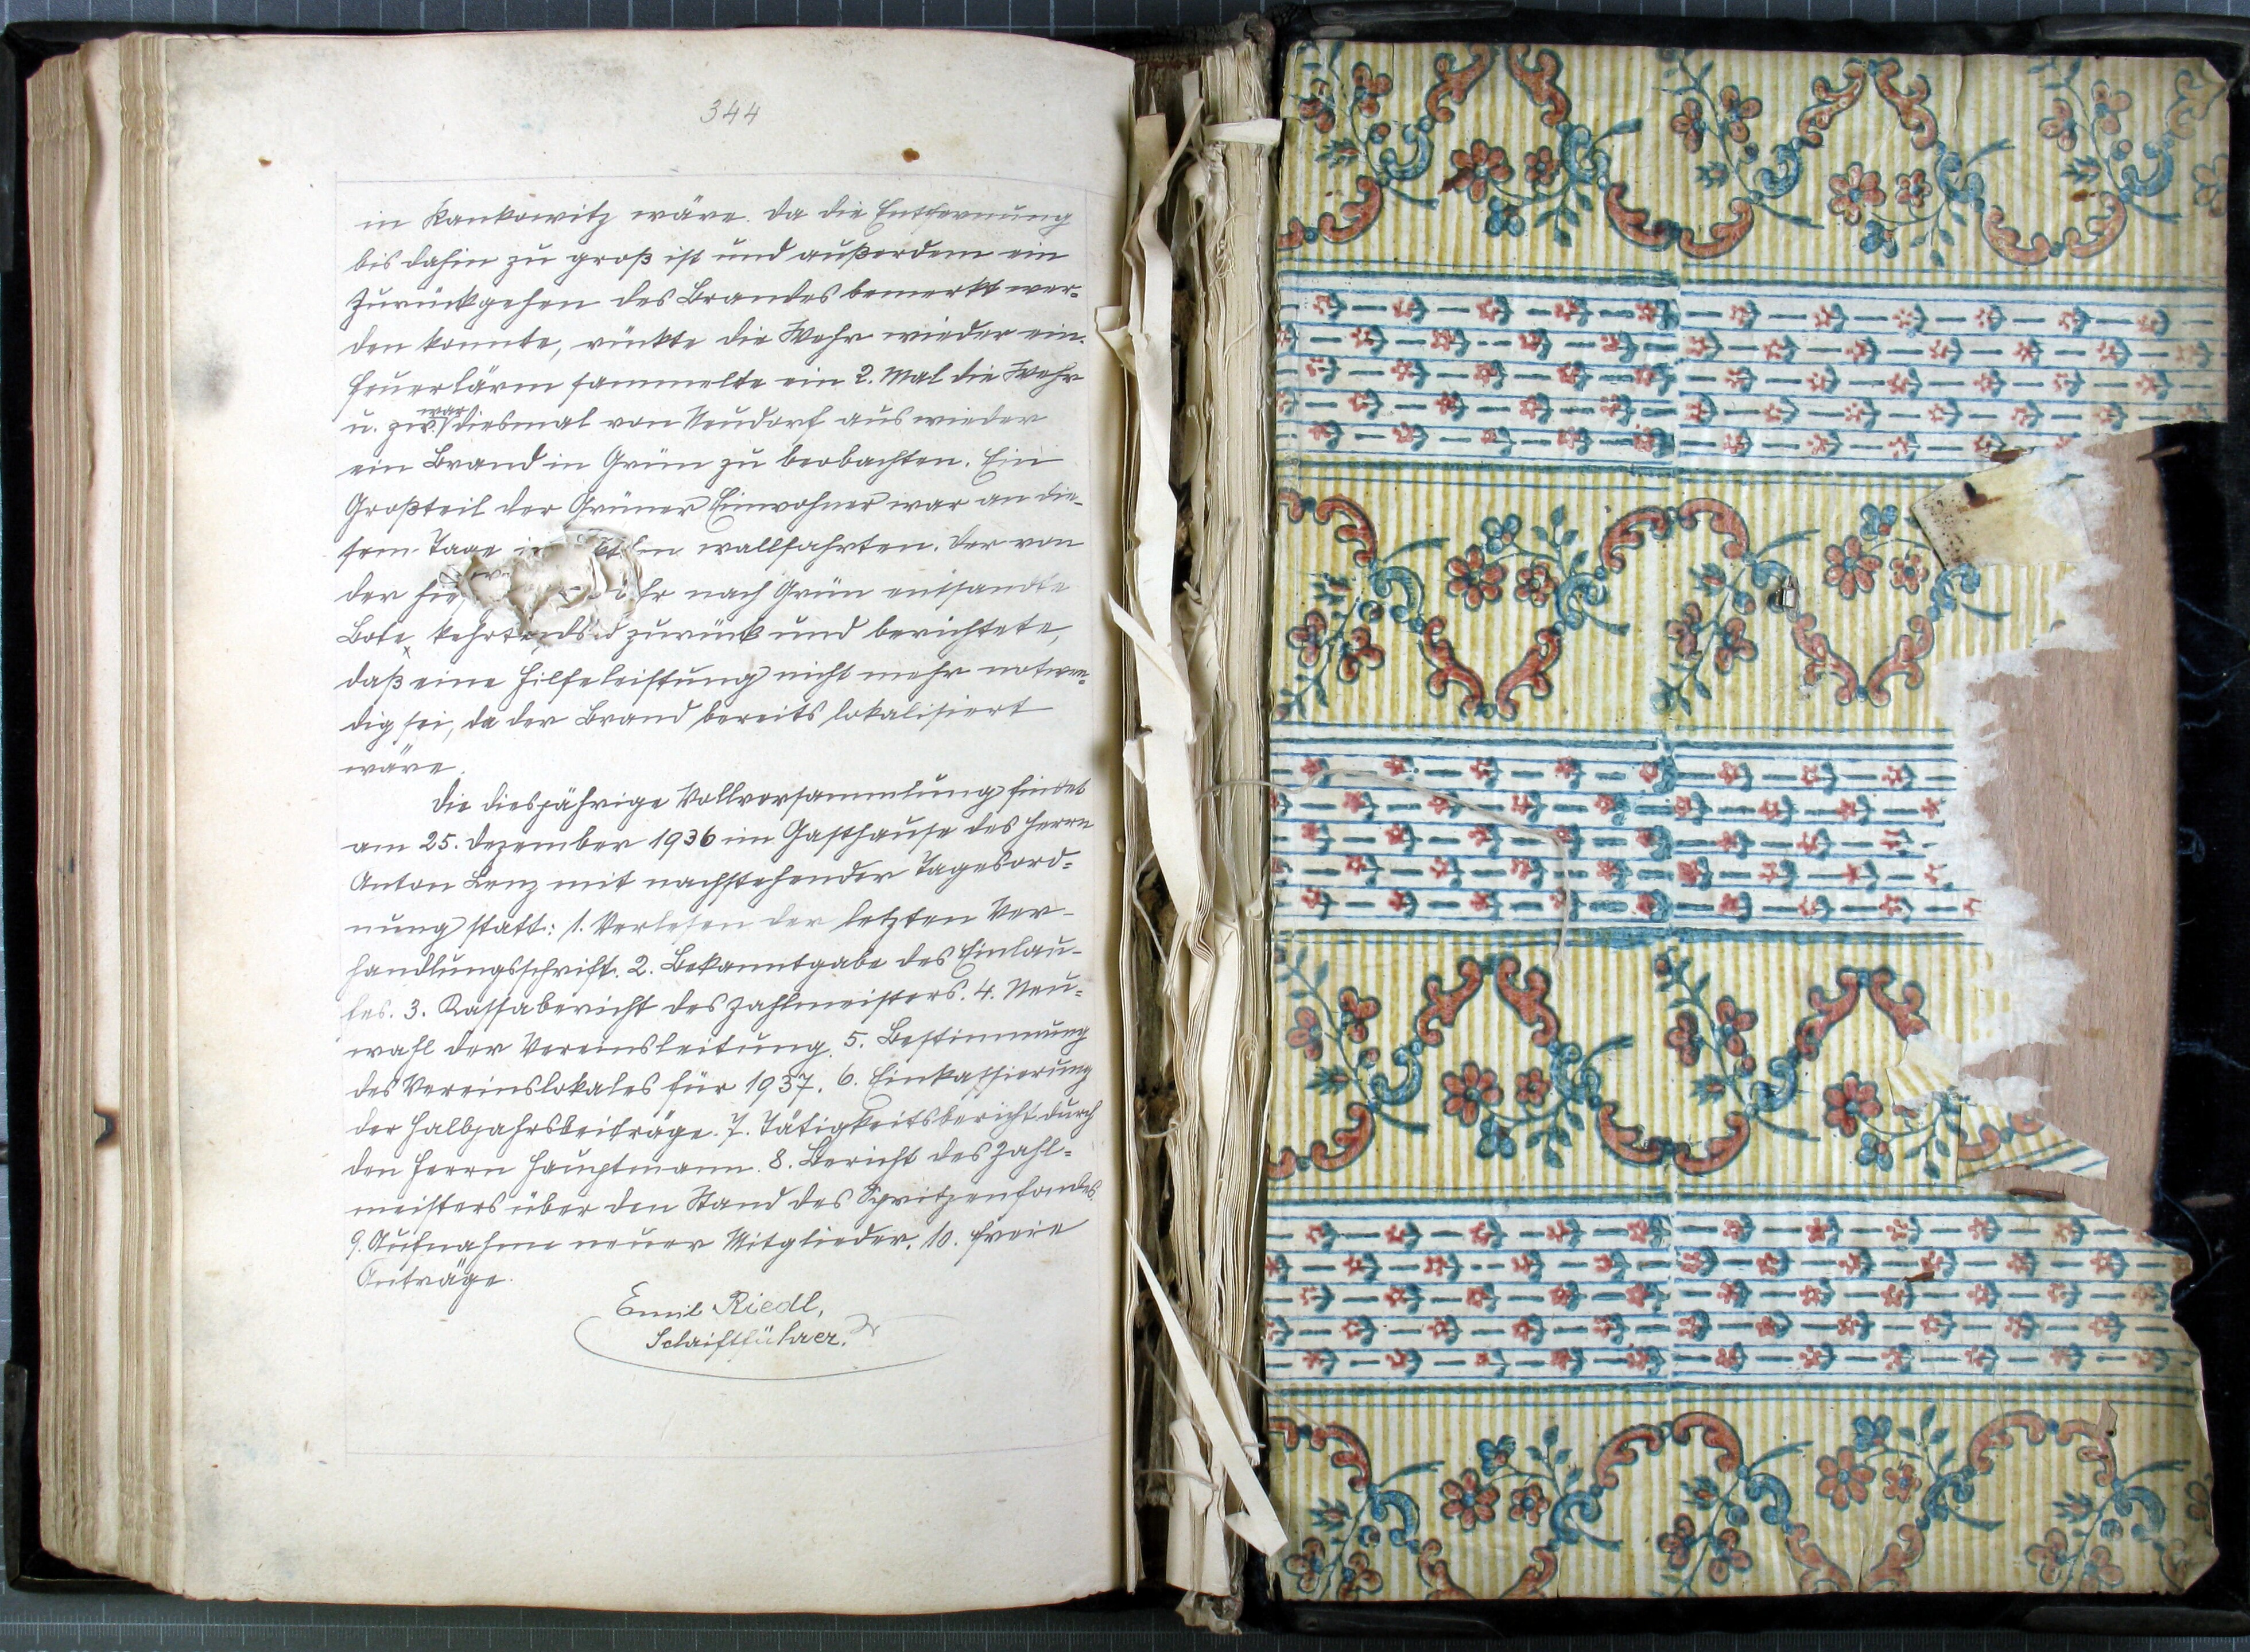 344
in Kankowitz wäre. Da die Entfernung
bis dahin zu groß ist und außerdem ein
Zurückgehen des Brandes bemerkt wer-
den konnte, rückte die Wehr wieder ein.
Feuerlärm sammelte ein 2. Mal die Wehr
u. zw. war diesmal von Neudorf aus wieder
ein Brand in Grün zu beobachten. Ein
Großteil der Grüner Einwohner war an die-
sem Tage wallfahrten. Der von
der nach Grün entsandte
Bote kehrte zurück und berichtete,
daß eine Hilfeleistung nicht mehr notwen-
dig sei, da der Brand bereits lokalisiert
wäre.
Die diesjährige Vollversammlung findet
am 25. Dezember 1936 im Gasthause des Herrn
Anton Lenz mit nachstehender Tagesord-
nung statt: 1. Verlesen der letzten Ver-
handlungsschrift. 2. Bekanntgabe des Einlau-
fes. 3. Kassabericht des Zahlmeisters. 4. Neu-
wahl der Vereinsleitung. 5. Bestimmung
des Vereinslokales für 1937. 6. Einkassierung
der Halbjahrsbeiträge. 7. Tätigkeitsbericht durch
den Herrn Hauptmann. 8. Bericht des Zahl-
meisters über den Stand des Spritzenfondes.
9. Aufnahme neuer Mitglieder. 10. Freie
Anträge.
Emil Riedl,
Schriftführer.